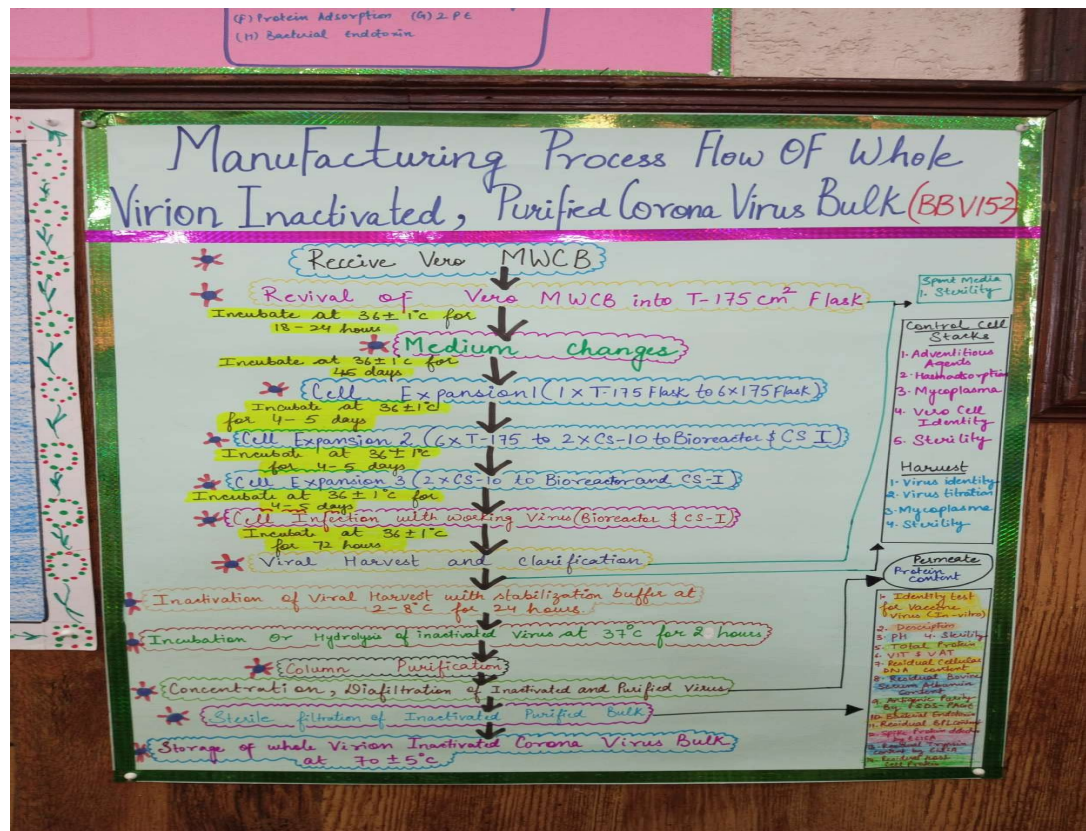 (F) Protein Adsorption (G) 2 PE
(H) Bacterial Endotoxin
Manufacturing Process Flow Of Whole
Virion Inactivated, Purified Corona Virus Bulk (BBV152)
Receive Vero MWCB
Revival of Vero MWCB into T-175 cm² Flask
Incubate at 36±1°c for
18-24 hours
Medium changes
Incubate at 36±1°c for
45 days
Cell Expansion1 (1 x T-175 Flask to 6x175 Flask)
Incubate at 36±1°c
for 4-5 days
Cell Expansion 2 (6xT-175 to 2xCS-10 to Bioreactor & CS I)
Incubate at 36±1°c
for 4-5 days
Cell Expansion 3 (2xCS-10 to Bioreactor and CS-I)
Incubate at 36±1°c for
4-5 days
Cell Infection with working Virus (Bioreactor & CS-I)
Incubate at 36±1°c
for 72 hours
Viral Harvest and clarification
Inactivation of Viral Harvest with stabilization buffer at
2-8°c for 24 hours
Incubation Or Hydrolysis of inactivated Virus at 37°c for 2 hours
Column Purification
Concentration, Diafiltration of Inactivated and Purified Virus
Sterile filtration of Inactivated Purified Bulk
Storage of whole Virion Inactivated Corona Virus Bulk
at 70±5°c
Spent Media
1. Sterility
Control Cell
Stacks
1. Adventitious
Agents
2.
3. Mycoplasma
4. Vero Cell
Identity
5. Sterility
Harvest
1. Virus identity
2. Virus titration
3. Mycoplasma
4. Sterility
Permeate
Protein
content
1. Identity test
for Vaccine
Virus (In-vitro)
2. Description
3. PH 4. Sterility
5. Total Protein
6. VIT & VAT
7. Residual Cellular
DNA content
8. Residual Bovine
Serum Albumin
content
9. Antigenic Purity
By SDS-PAGE
10. Bacterial Endotoxin
11. Residual BPL
Spike Protein
by ELISA
13. Residual Trypsin
content by ELISA
14. Residual Host
Cell Protein